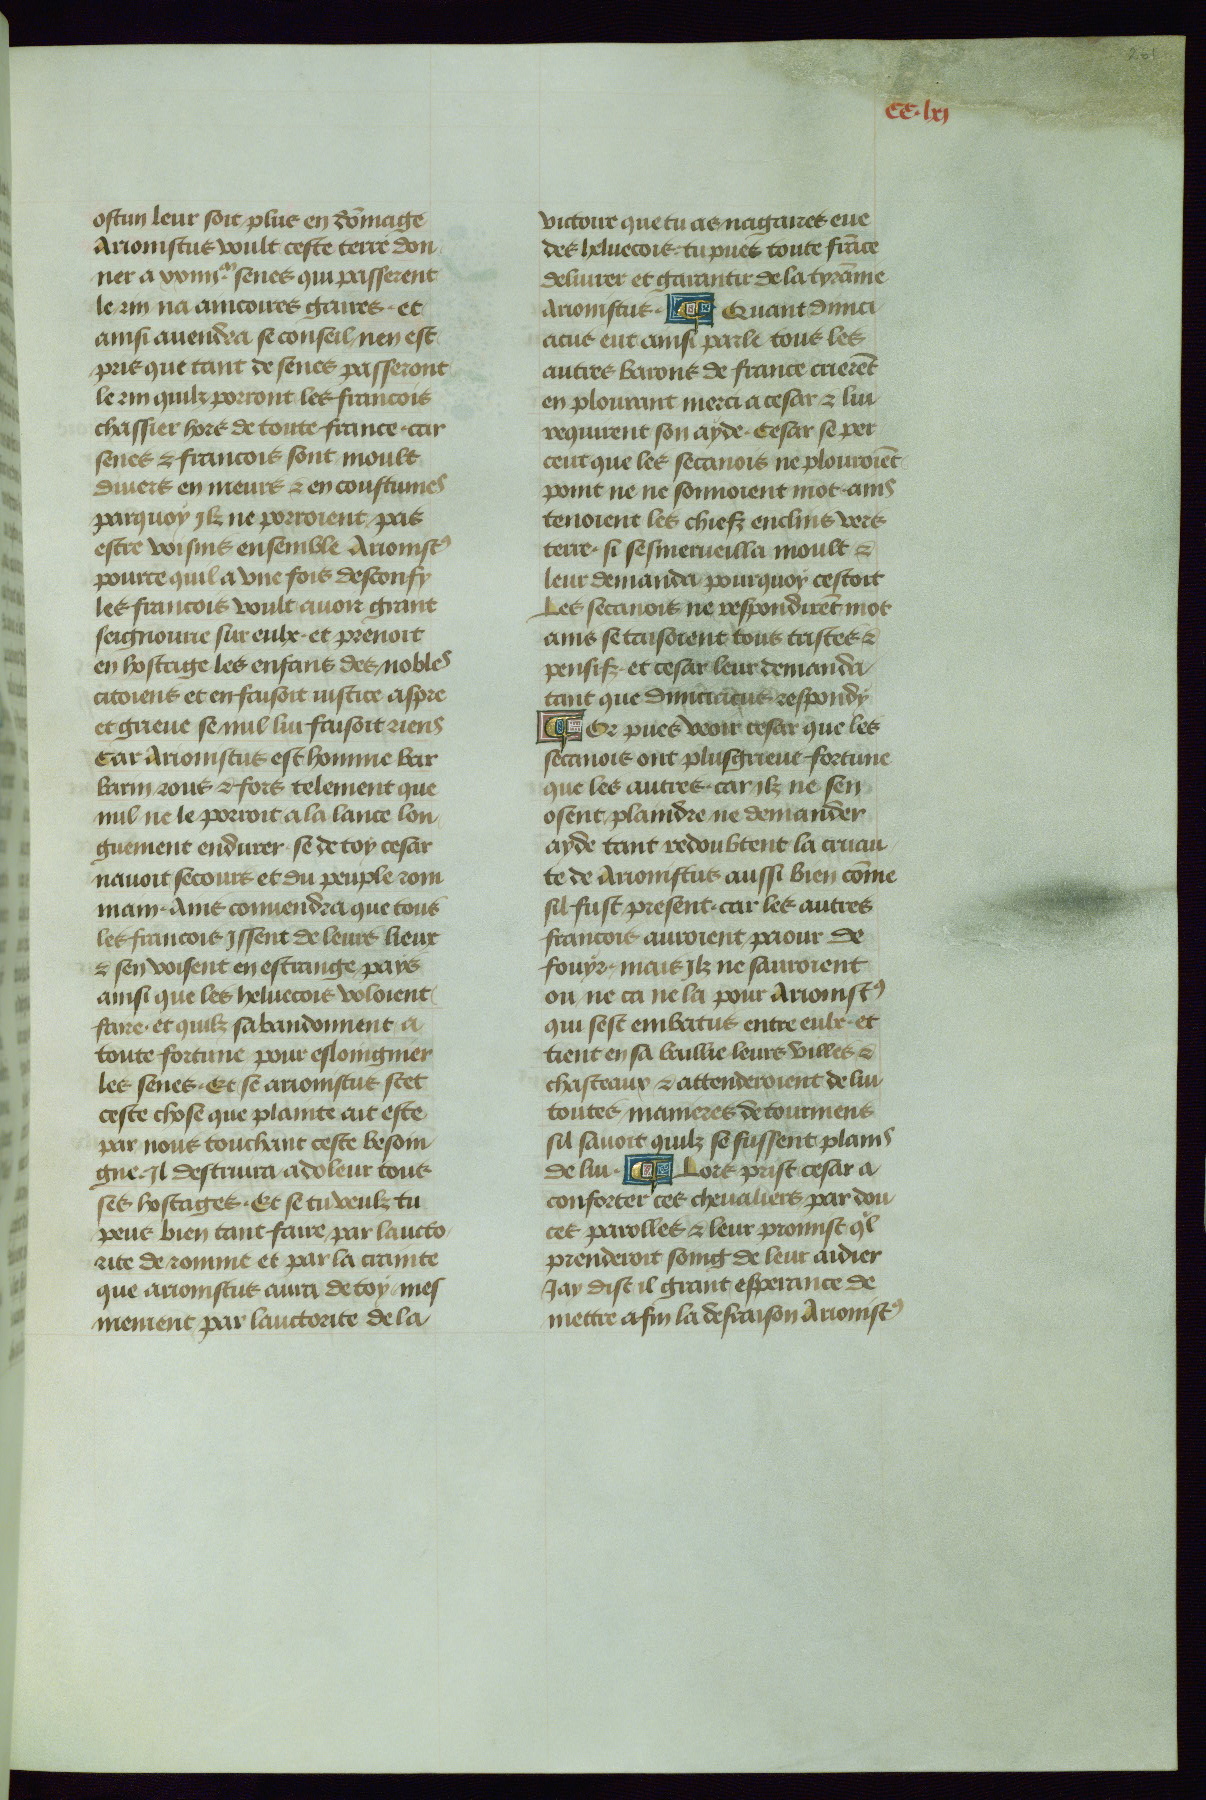 CC.lxj
ostun leur soit plus en dōmage
Arionistus voult ceste terre don
ner a xxiiii.m senes qui passerent
le rin na ancoires gaires. et
ainsi auendra se conseil nen est
pris que tant de senes passeront
le rin quilz porront les francois
chassier hors de toute france. car
senes & francois sont moult
diuers en meurs & en coustumes
parquoy jlz ne porroient pas
estre voisins ensemble Arionistꝰ
pource quil a vne fois desconfy
les francois voult auoir grant
seignourie sur eulx. et prenoit
en hostage les enfans des nobles
citoiens et en faisoit iustice aspre
et grieue se nul lui faisoit riens
Car Arionistus est homme bar
barin rous & fors telement que
nul ne le porroit a la lance lon
guement endurer. se de toy cesar
nauoit secours et du peuple rom
main. Ains conuendra que tous
les francois jssent de leurs lieux
& sen voisent en estrange pays
ainsi que les heluecois voloient
faire. et quilz sabandonnent a
toute fortune pour eslongnier
les senes. Et se arionistus scet
ceste chose que plainte ait este
par nous touchant ceste besoin
gne. Jl destruira a doleur tous
ses hostages. Et se tu veulz tu
peus bien tant faire par laucto
rite de romme et par la crainte
que arionistus aura de toy. mes
mement par lauctorite de la
victoire que tu as nagaires eue
des heluecois. tu pues toute frāce
deliurer et garantir de la tyrānie
Arionistus. Quant diuici
acus eut ainsi parle tous les
autres barons de france crierēt
en plourant merci a cesar & lui
requirent son ayde. Cesar se per
ceut que les secanois ne plouroiēt
point ne ne sonnoient mot. ains
tenoient les chiefz enclins vers
terre. si sesmerueilla moult &
leur demanda pourquoy cestoit
Les secanois ne respondirēt mot
ains se taisoient tous tristes &
pensifz. et cesar leur demanda
tant que diuiciacus respondy
Or pues veoir cesar que les
secanois ont plusgrieue fortune
que les autres. car jlz ne sen
osent plaindre ne demander
ayde tant redoubtent la cruau
te de Arionistus aussi bien cōme
sil fust present. car les autres
francois auroient paour de
fouyr. mais jlz ne sauroient
ou ne ca ne la pour Arionistꝰ
qui sest embatus entre eulx. et
tient en sa baillie leurs villes &
chasteaux & attenderoient de lui
toutes manieres de tourmens
sil sauoit quilz se fussent plains
de lui. Lors prist cesar a
conforter ces cheualiers par doul
ces parolles & leur promist ql
prenderoit soing de leur aidier
Jay dist il grant esperance de
mettre a fin la desraison Arionistꝰ